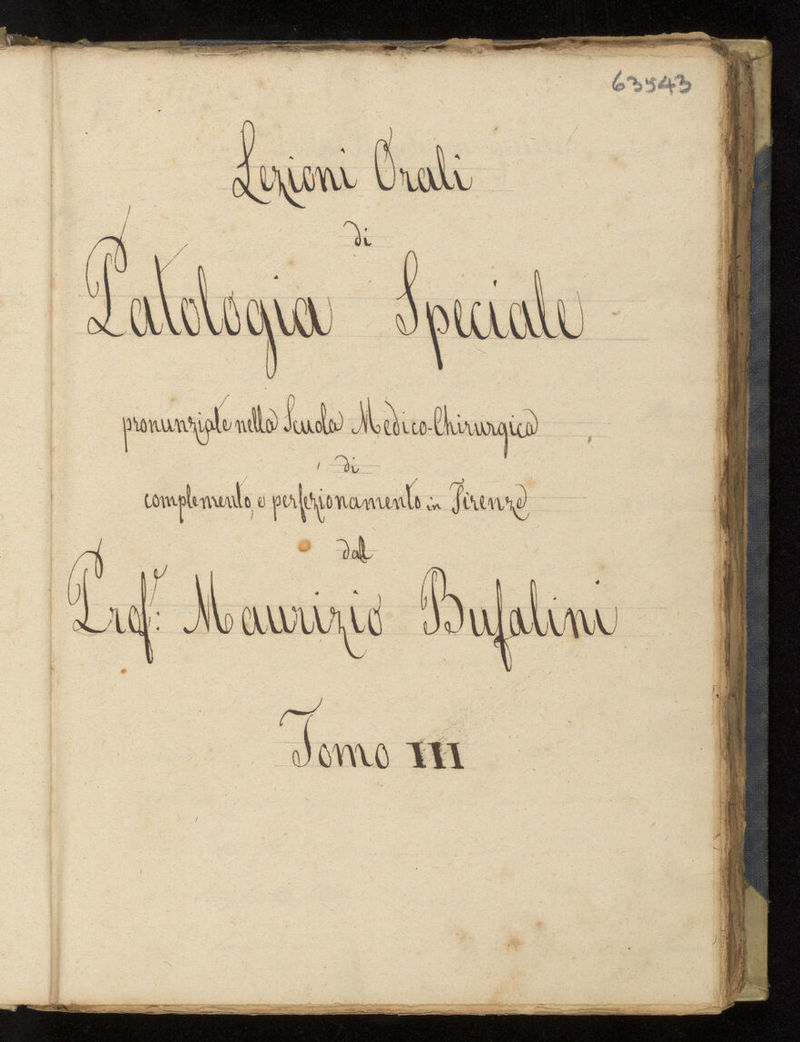 63543
Lezioni Orali
di
Patologia Speciale
pronunziate nella Scuola Medico-Chirurgica
di
complemento, e perfezionamento in Firenze
dal
Prof.r: Maurizio Bufalini
Tomo III